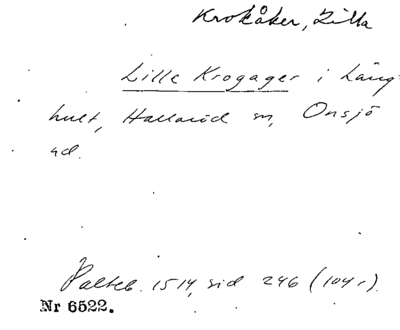 Krokåker, Lilla
Lille Krogager i Lång-
hult, Hallaröd sn, Onsjö
hd.
Palteb. 1514, sid 246 (104r).
Nr 6522.